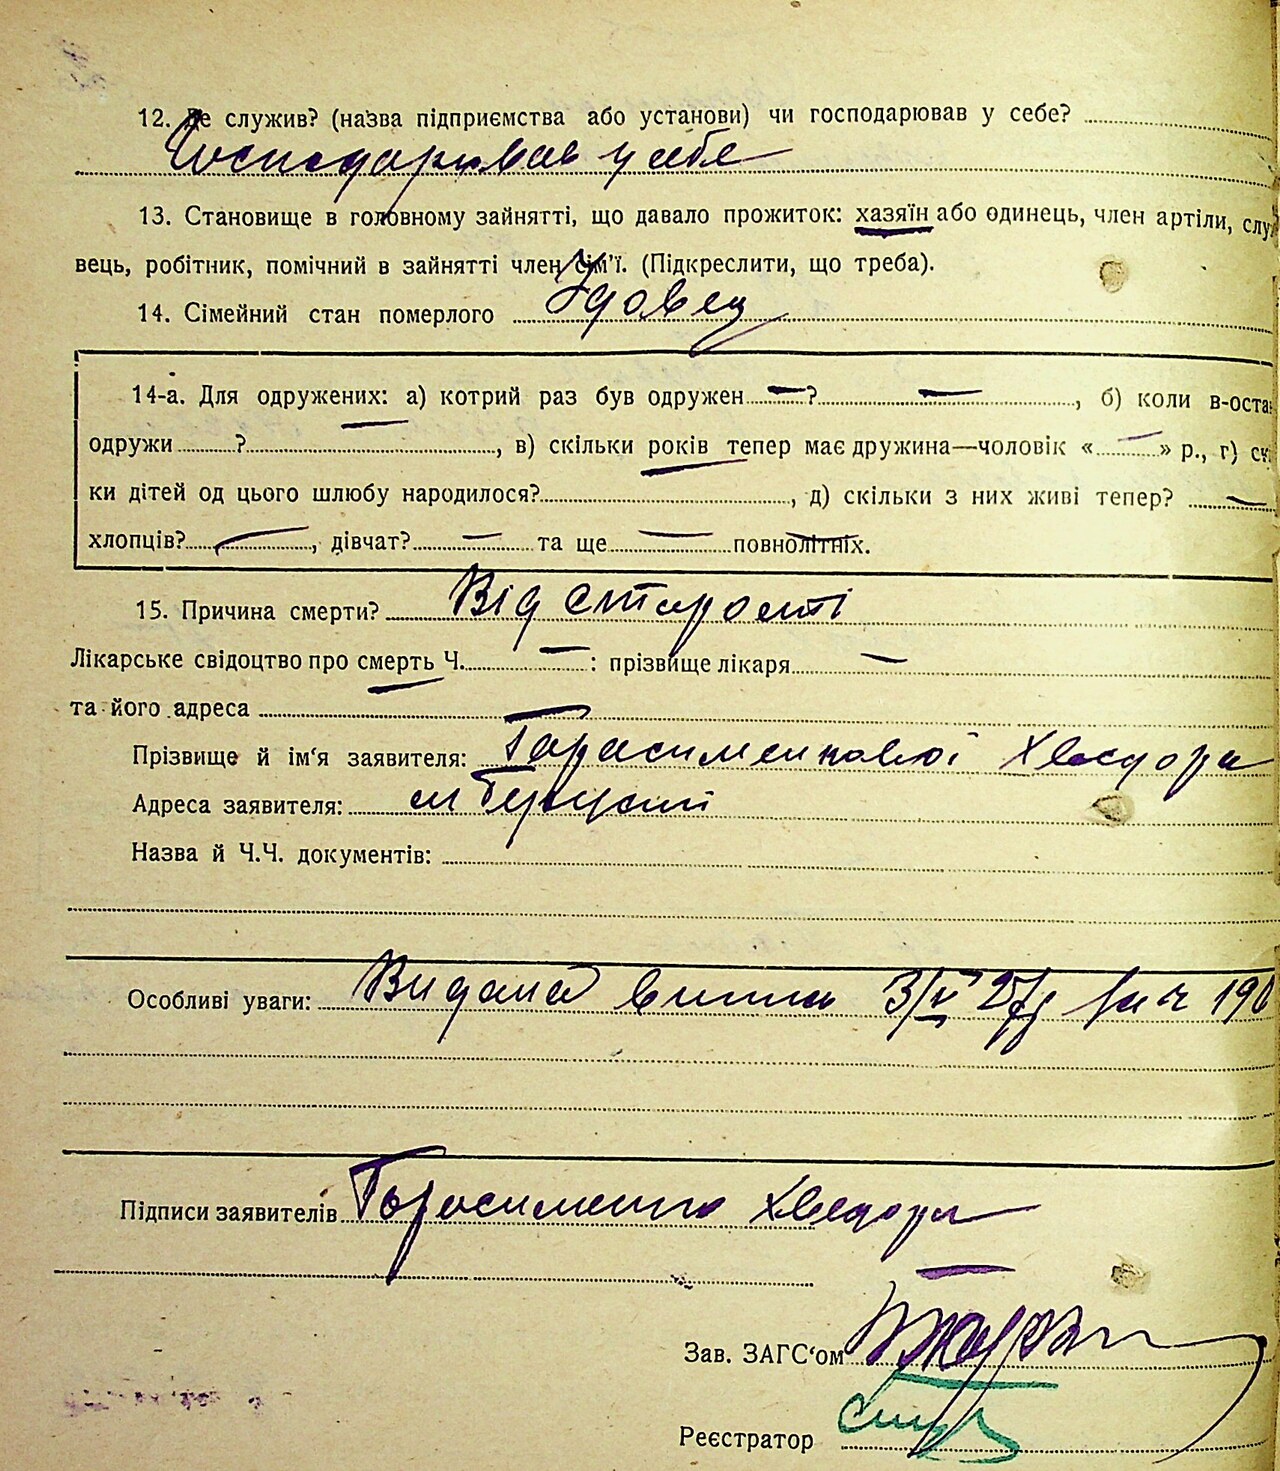 12. Де служив? (назва підприємства або установи) чи господарював у себе?
Господарював у себе
13. Становище в головному зайнятті, що давало прожиток: хазяїн або одинець, член артіли, служ
вець, робітник, помічний в зайнятті член сім'ї. (Підкреслити, що треба).
14. Сімейний стан померлого Удовец
14-а. Для одружених: а) котрий раз був одружен — ? —, б) коли в-оста
одружи ? —, в) скільки років тепер має дружина—чоловік « — » р., г) скі
ки дітей од цього шлюбу народилося? —, д) скільки з них живі тепер? —
хлопців? —, дівчат? — та ще — повнолітніх.
15. Причина смерти? Від старості
Лікарське свідоцтво про смерть Ч. — : прізвище лікаря —
та його адреса —
Прізвище й ім'я заявителя: Гарасименкової Хведора
Адреса заявителя: м
Назва й Ч.Ч. документів:
Особливі уваги: Видана 3/IV 27р 190
Підписи заявителів Гарасименко Хведора
Зав. ЗАГС'ом
Реєстратор